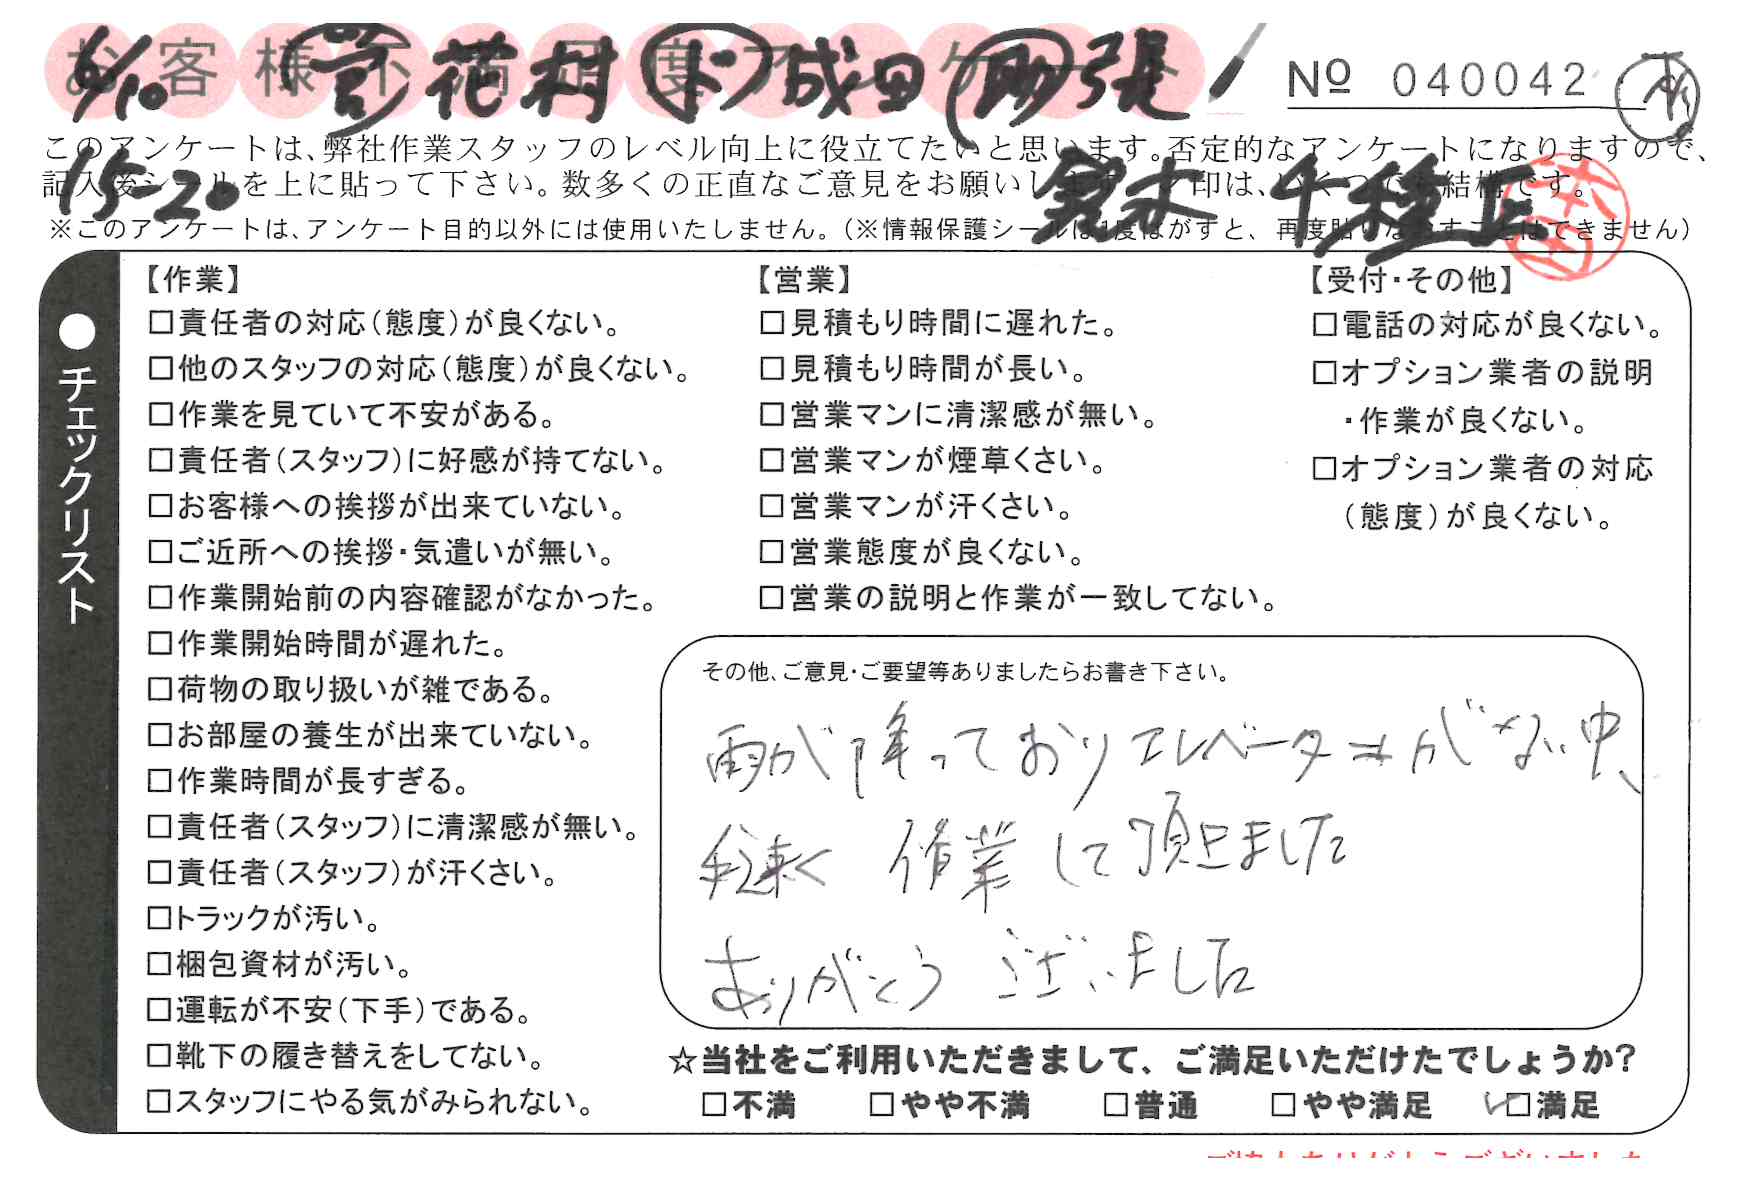 お客様不満足度アンケート
6/10 営 花村 ド 成田 助 張
№ 040042
このアンケートは、弊社作業スタッフのレベル向上に役立てたいと思います。否定的なアンケートになりますので、
記入後シールを上に貼って下さい。数多くの正直なご意見をお願いします。レ印は、いくつでも結構です。
15-20
鈴木 千種
※このアンケートは、アンケート目的以外には使用いたしません。（※情報保護シールは1度はがすと、再度貼りなおすことはできません）
●チェックリスト
【作業】
□責任者の対応（態度）が良くない。
□他のスタッフの対応（態度）が良くない。
□作業を見ていて不安がある。
□責任者（スタッフ）に好感が持てない。
□お客様への挨拶が出来ていない。
□ご近所への挨拶・気遣いが無い。
□作業開始前の内容確認がなかった。
□作業開始時間が遅れた。
□荷物の取り扱いが雑である。
□お部屋の養生が出来ていない。
□作業時間が長すぎる。
□責任者（スタッフ）に清潔感が無い。
□責任者（スタッフ）が汗くさい。
□トラックが汚い。
□梱包資材が汚い。
□運転が不安（下手）である。
□靴下の履き替えをしてない。
□スタッフにやる気がみられない。
【営業】
□見積もり時間に遅れた。
□見積もり時間が長い。
□営業マンに清潔感が無い。
□営業マンが煙草くさい。
□営業マンが汗くさい。
□営業態度が良くない。
□営業の説明と作業が一致してない。
【受付・その他】
□電話の対応が良くない。
□オプション業者の説明
・作業が良くない。
□オプション業者の対応
（態度）が良くない。
その他、ご意見・ご要望等ありましたらお書き下さい。
雨が降っており エレベーターがない中、
手速く 作業して頂きました
ありがとう ございました
☆当社をご利用いただきまして、ご満足いただけたでしょうか？
□不満 □やや不満 □普通 □やや満足 ✓□満足
ご協力ありがとうございました